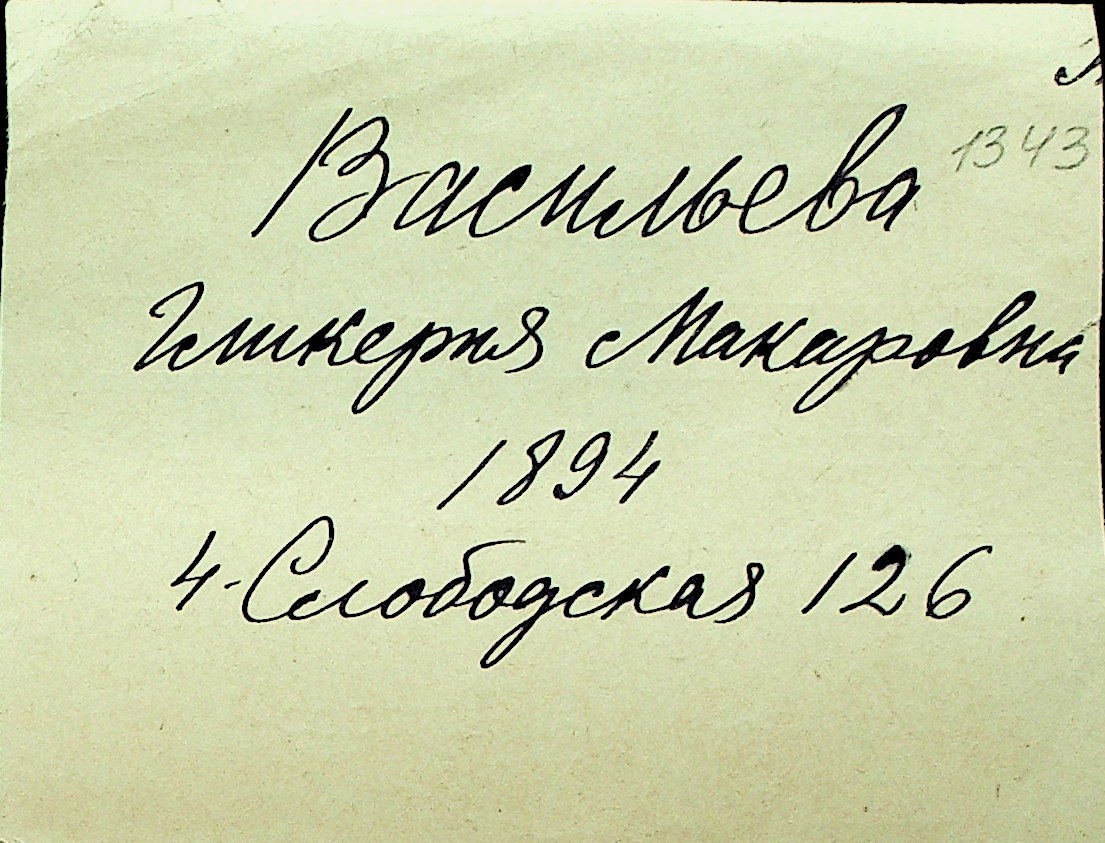 1343
Васильева
Гликерия Макаровна
1894
4-Слободская 126